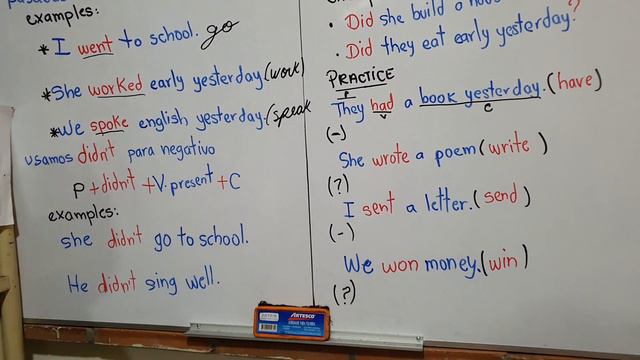 examples:
*I went to school. go
*She worked early yesterday (work)
*We spoke english yesterday. (speak
usamos didn't para negativo
P + didn't + V. present + C
examples:
she didn't go to school.
He didn't sing well.
. Did she build a
. Did they eat early yesterday?
PRACTICE
P
They had a book yesterday. (have)
V C
(-)
She wrote a poem (write )
(?)
I sent a letter. (send )
(-)
We won money. (win )
(?)
ARTESCO